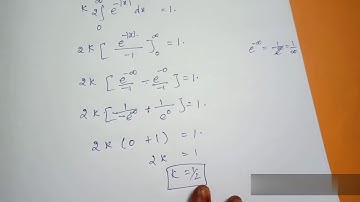 k 2∫₀^∞ e^{-|x|} dx = 1.
2k [ e^{-|x|} / -1 ]₀^∞ = 1.
2k [ e^{-∞} / -1 - e^{-0} / -1 ] = 1.
2k [ 1 / -e^∞ + 1 / e^0 ] = 1.
2k (0 + 1) = 1.
2k = 1
k = 1/2
e^{-∞} = 1/e^∞ = 1/∞